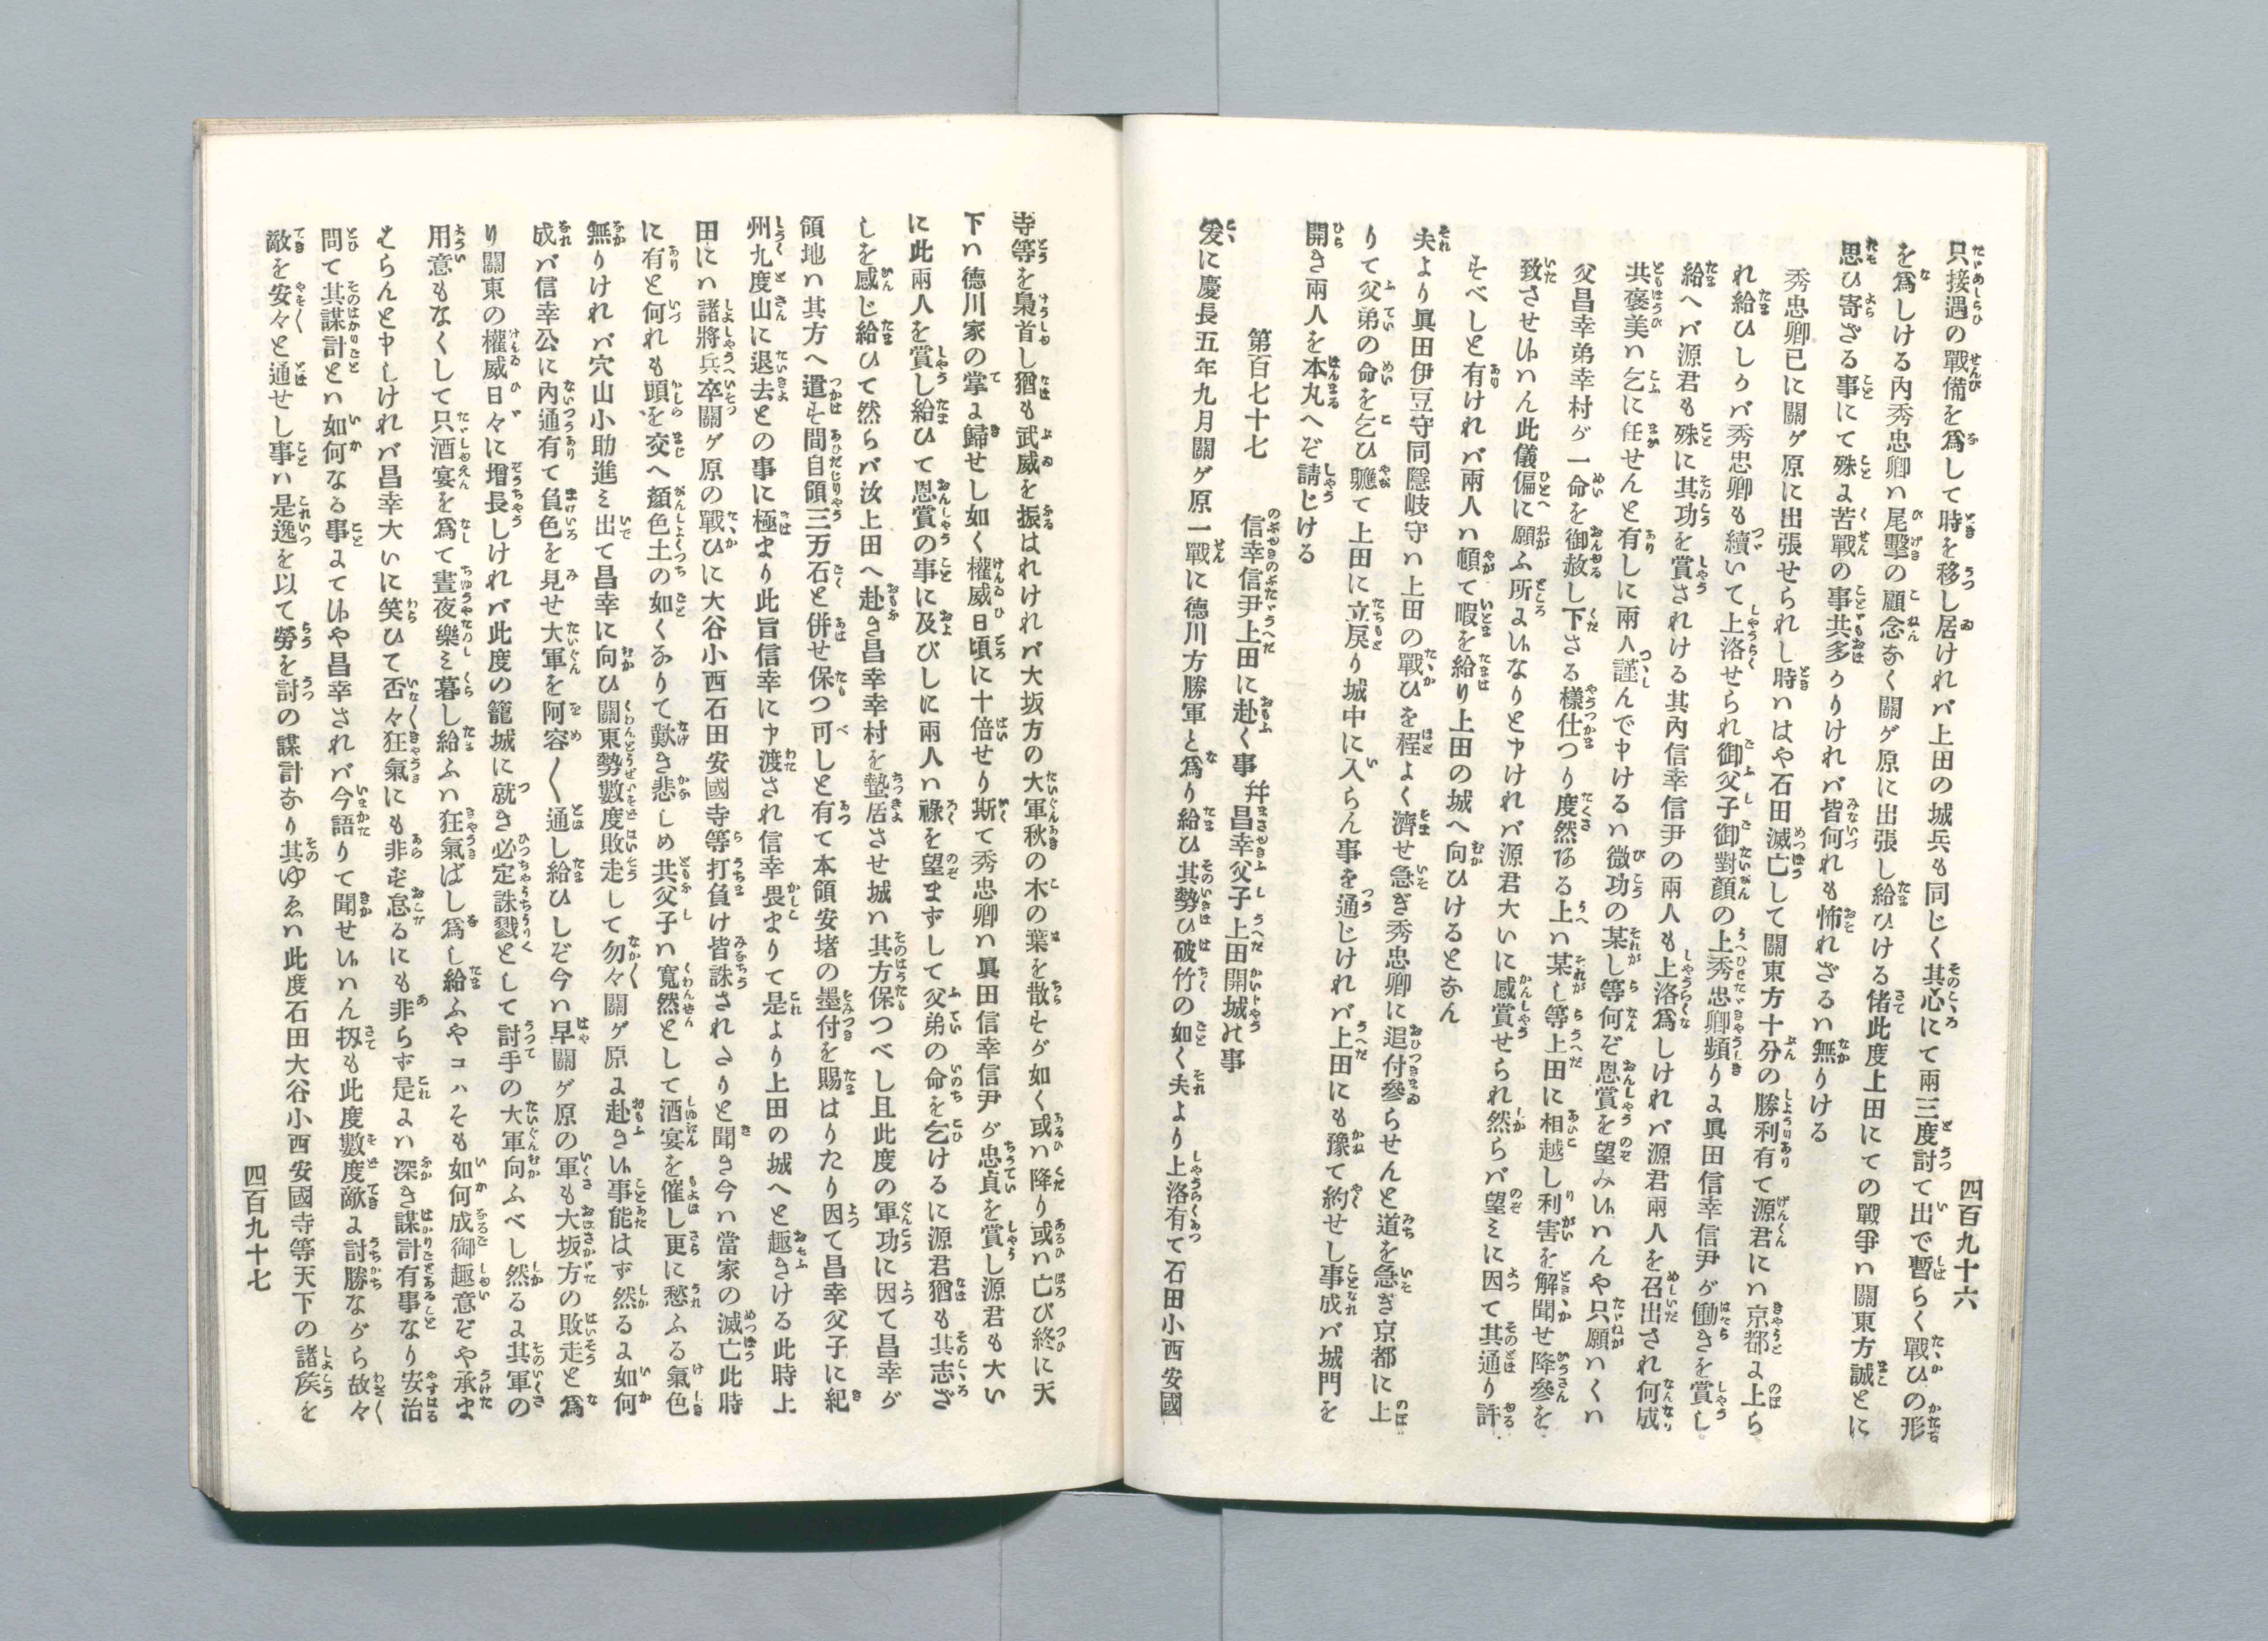 四百九十六
只接遇の戰備を爲して時を移し居けれバ上田の城兵も同じく其心にて兩三度討て出で暫らく戰ひの形
を爲しける內秀忠卿ハ尾擊の顧念なく關ケ原に出張し給ひける偖此度上田にての戰爭ハ關東方誠とに
思ひ寄ざる事にて殊に苦戰の事共多かりけれバ皆何れも怖れざるハ無りける
秀忠卿已に關ケ原に出張せられし時ハはや石田滅亡して關東方十分の勝利有て源君にハ京都に上ら
れ給ひしかバ秀忠卿も續いて上洛せられ御父子御對顏の上秀忠卿頻りに眞田信幸信尹が働きを賞し
給へバ源君も殊に其功を賞されける其內信幸信尹の兩人も上洛爲しけれバ源君兩人を召出され何成
共褒美ハ乞に任せんと有しに兩人謹んで申けるハ微功の某し等何ぞ恩賞を望み候ハんや只願ハくハ
父昌幸弟幸村が一命を御赦し下さる樣仕つり度然ある上ハ某し等上田に相越し利害を解聞せ降參を
致させ候ハん此儀偏に願ふ所に候なりと申けれバ源君大いに感賞せられ然らバ望ミに因て其通り許
すべしと有けれバ兩人ハ頓て暇を給り上田の城へ向ひけるとなん
夫より眞田伊豆守同隱岐守ハ上田の戰ひを程よく濟せ急ぎ秀忠卿に追付參らせんと道を急ぎ京都に上
りて父弟の命を乞ひ軈て上田に立戾り城中に入らん事を通じけれバ上田にも豫て約せし事成バ城門を
開き兩人を本丸へぞ請じける
第百七十七　信幸信尹上田に赴く事　幷昌幸父子上田開城の事
爰に慶長五年九月關ケ原一戰に德川方勝軍と爲り給ひ其勢ひ破竹の如く夫より上洛有て石田小西安國
寺等を梟首し猶も武威を振はれけれバ大坂方の大軍秋の木の葉を散すが如く或ハ降り或ハ亡び終に天
下ハ德川家の掌に歸せし如く權威日頃に十倍せり斯て秀忠卿ハ眞田信幸信尹が忠貞を賞し源君も大い
に此兩人を賞し給ひて恩賞の事に及びしに兩人ハ祿を望まずして父弟の命を乞けるに源君猶も其志ざ
しを感じ給ひて然らバ汝上田へ赴き昌幸幸村を蟄居させ城ハ其方保つべし且此度の軍功に因て昌幸が
領地ハ其方へ遣す間自領三万石と併せ保つ可しと有て本領安堵の墨付を賜はりたり因て昌幸父子に紀
州九度山に退去との事に極まり此旨信幸に申渡され信幸畏まりて是より上田の城へと趣きける此時上
田にハ諸將兵卒關ケ原の戰ひに大谷小西石田安國寺等打負け皆誅されたりと聞き今ハ當家の滅亡此時
に有と何れも頭を交へ顏色土の如くなりて歎き悲しめ共父子ハ寬然として酒宴を催し更に愁ふる氣色
無りけれバ穴山小助進ミ出て昌幸に向ひ關東勢數度敗走して勿々關ケ原に赴き候事能はず然るに如何
成バ信幸公に內通有て負色を見せ大軍を阿容〱通し給ひしぞ今ハ早關ケ原の軍も大坂方の敗走と爲
り關東の權威日々に增長しけれバ此度の籠城に就き必定誅戮として討手の大軍向ふべし然るに其軍の
用意もなくして只酒宴を爲て晝夜樂ミ暮し給ふハ狂氣ばし爲し給ふやコハそも如何成御趣意ぞや承ま
はらんと申しけれバ昌幸大いに笑ひて否々狂氣にも非ず怠るにも非らず是にハ深き謀計有事なり安治
問て其謀計とハ如何なる事にて候や昌幸されバ今語りて聞せ候ハん扨も此度數度敵に討勝ながら故々
敵を安々と通せし事ハ是逸を以て勞を討の謀計なり其ゆゑハ此度石田大谷小西安國寺等天下の諸矦を
四百九十七